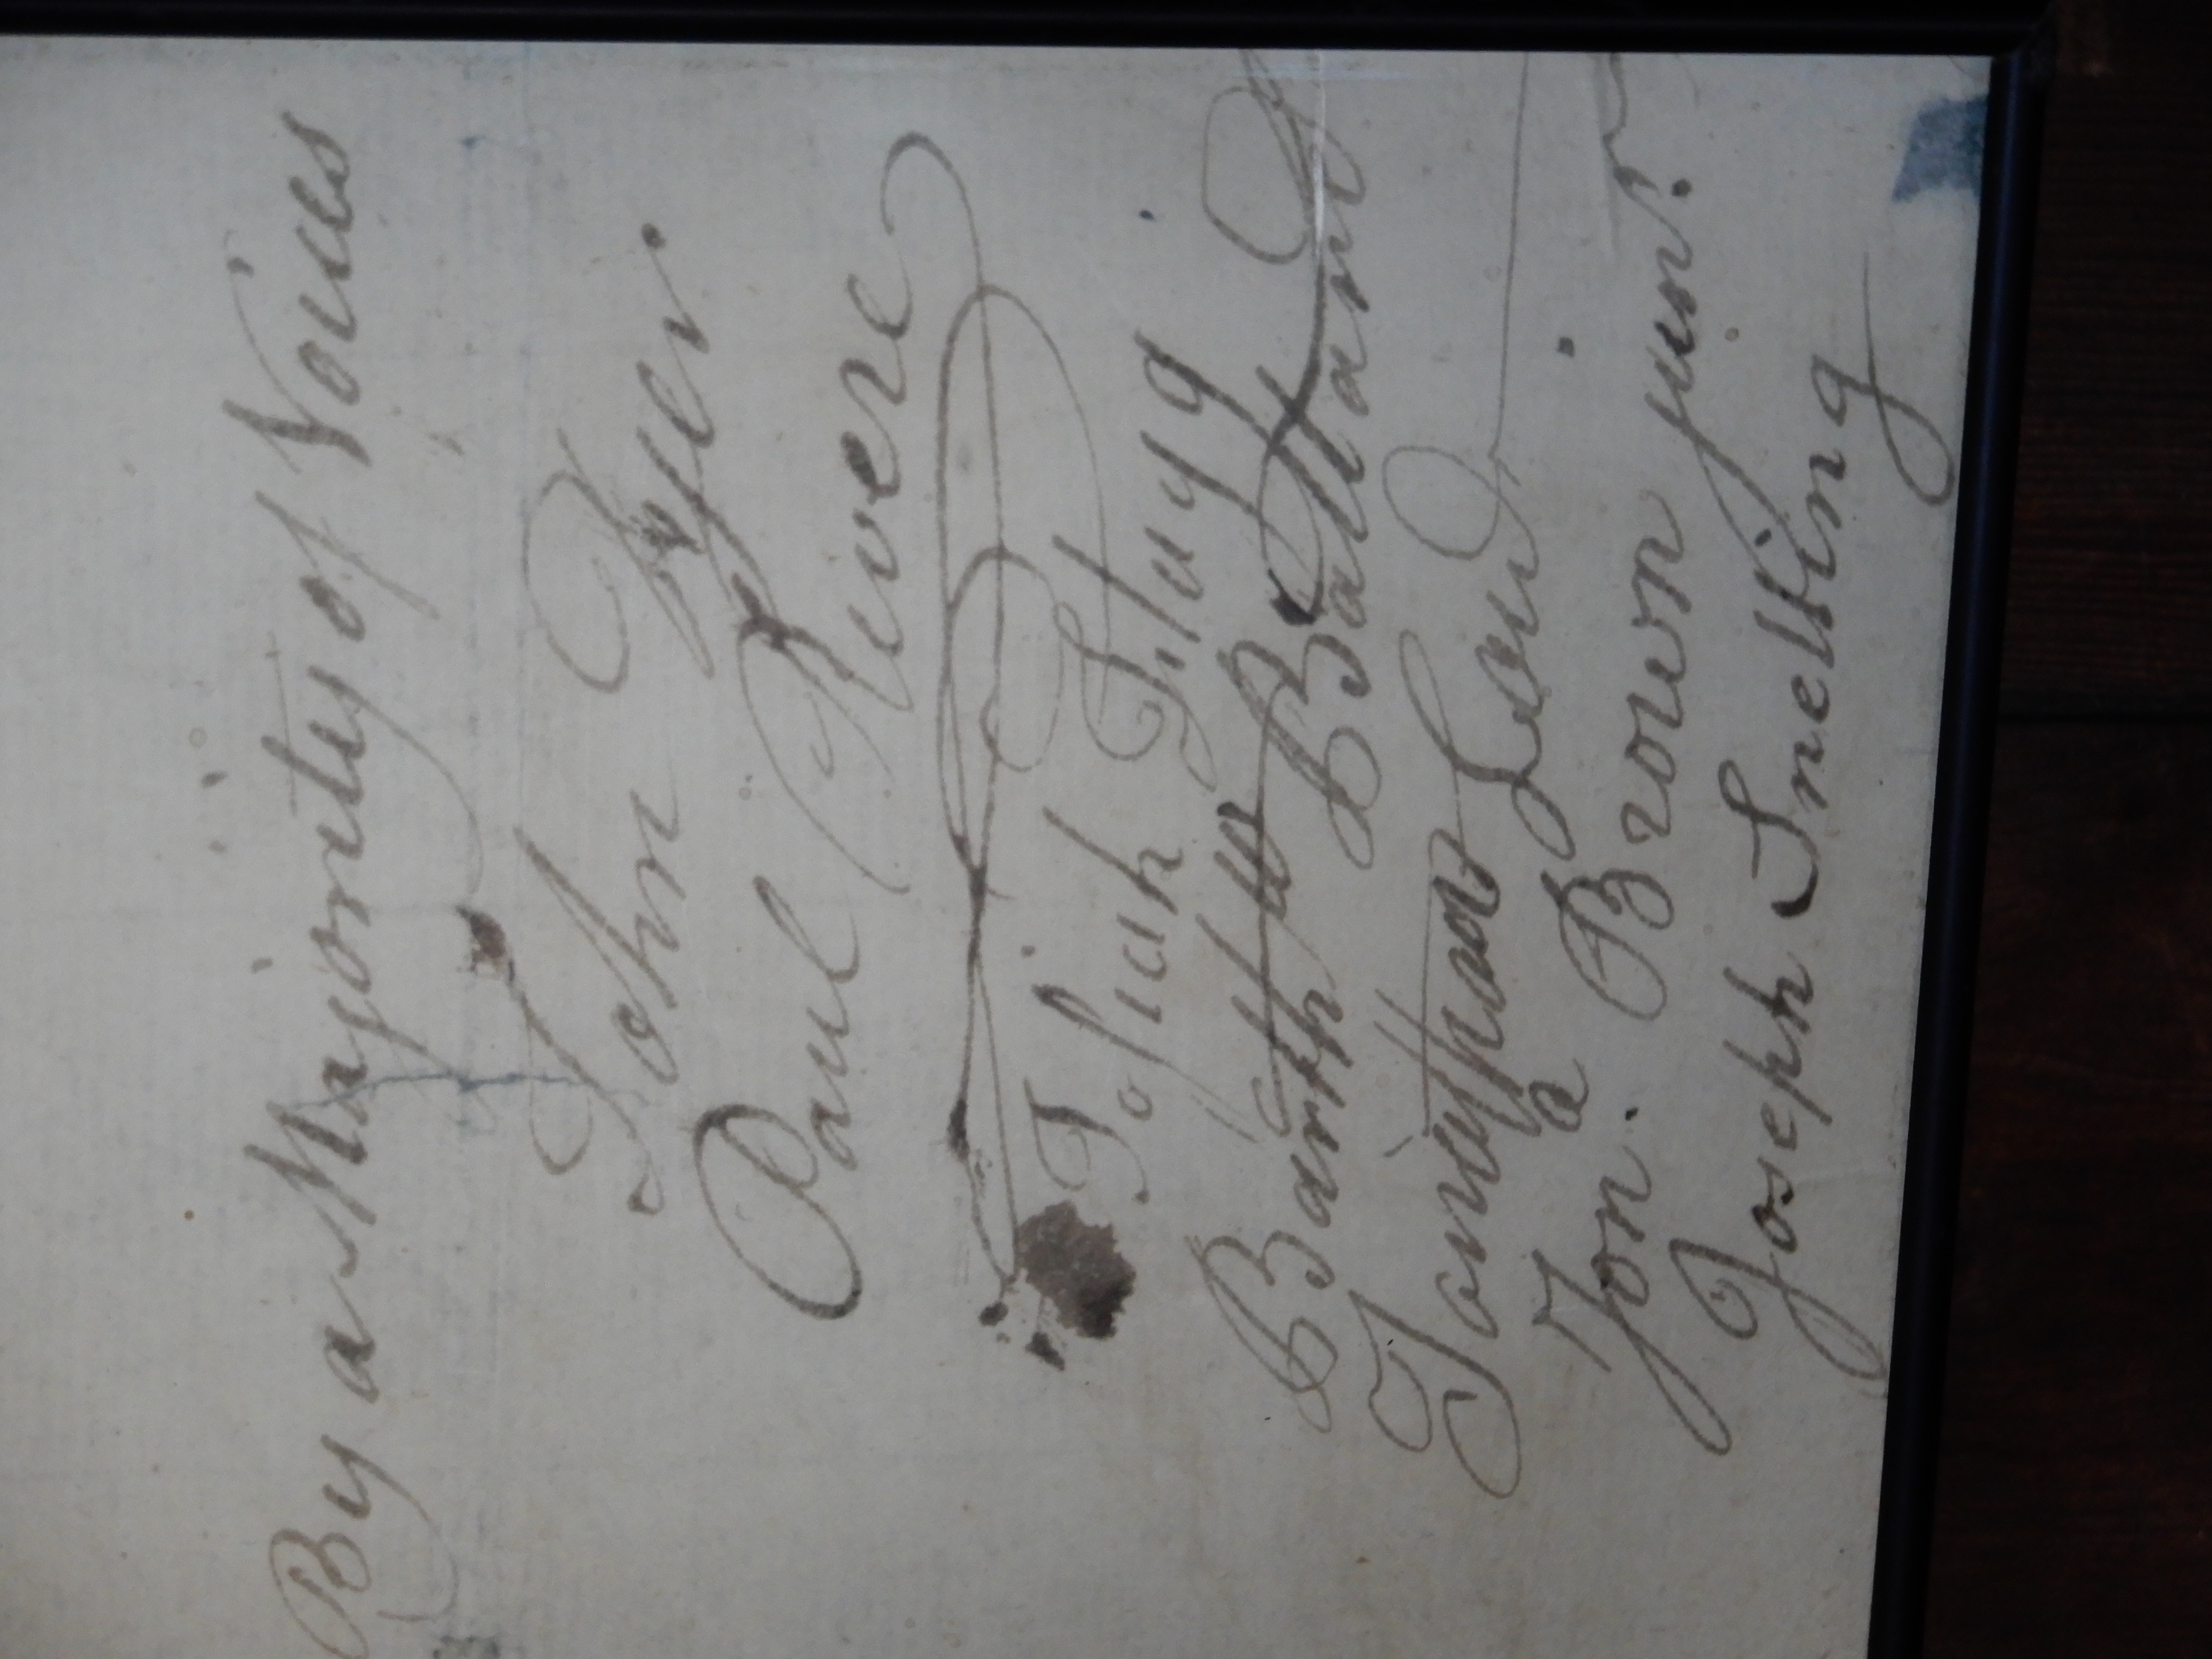 By a Majority of Voices
John Dyer
Paul Revere
Josiah Flagg
Ballard
Jonathan Law
Jona. Brown junr.
Joseph Snelling